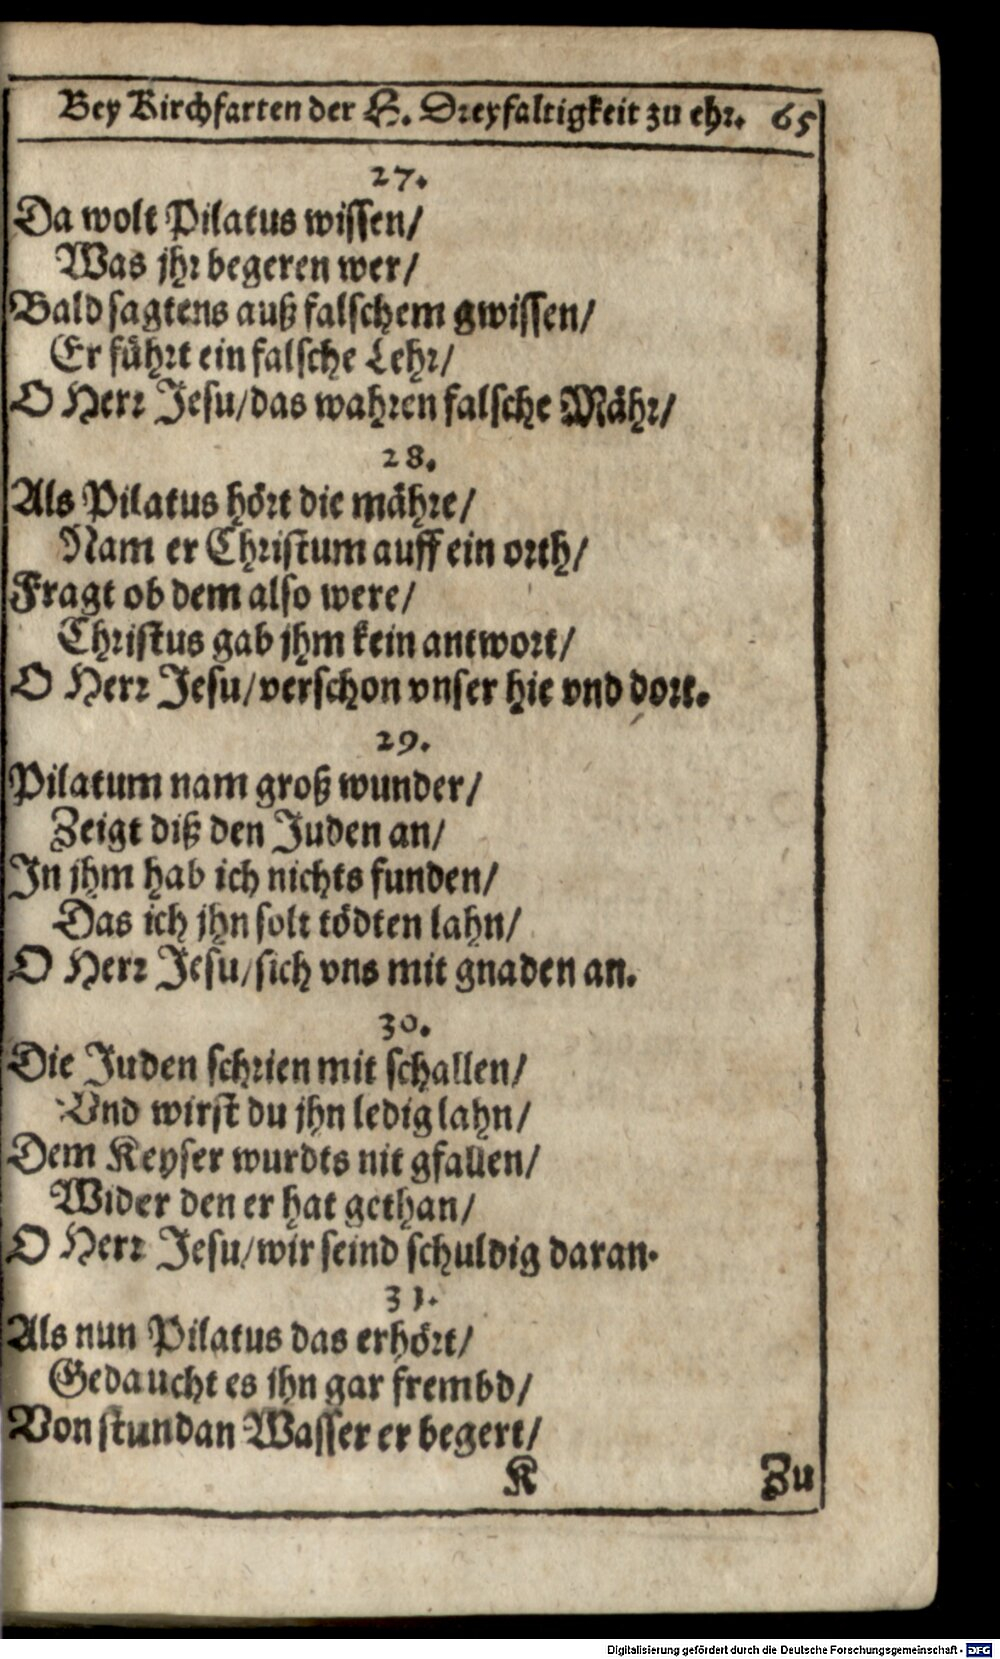 Bey Kirchfarten der H. Dreyfaltigkeit zu ehr. 65
27.
Da wolt Pilatus wissen/
Was jhr begeren wer/
Bald sagtens auß falschem gwissen/
Er führt ein falsche Lehr/
O Herr Jesu/das wahren falsche Mähr/
28.
Als Pilatus hört die mähre/
Nam er Christum auff ein orth/
Fragt ob dem also were/
Christus gab jhm kein antwort/
O Herr Jesu/verschon vnser hie vnd dort.
29.
Pilatum nam groß wunder/
Zeigt diß den Juden an/
In jhm hab ich nichts funden/
Das ich jhn solt tödten lahn/
O Herr Jesu/sich vns mit gnaden an.
30.
Die Juden schrien mit schallen/
Vnd wirst du jhn ledig lahn/
Dem Keyser wurdts nit gfallen/
Wider den er hat gethan/
O Herr Jesu/wir seind schuldig daran.
31.
Als nun Pilatus das erhört/
Gedaucht es jhn gar frembd/
Von stundan Wasser er begert/
K Zu
Digitalisierung gefördert durch die Deutsche Forschungsgemeinschaft - DFG